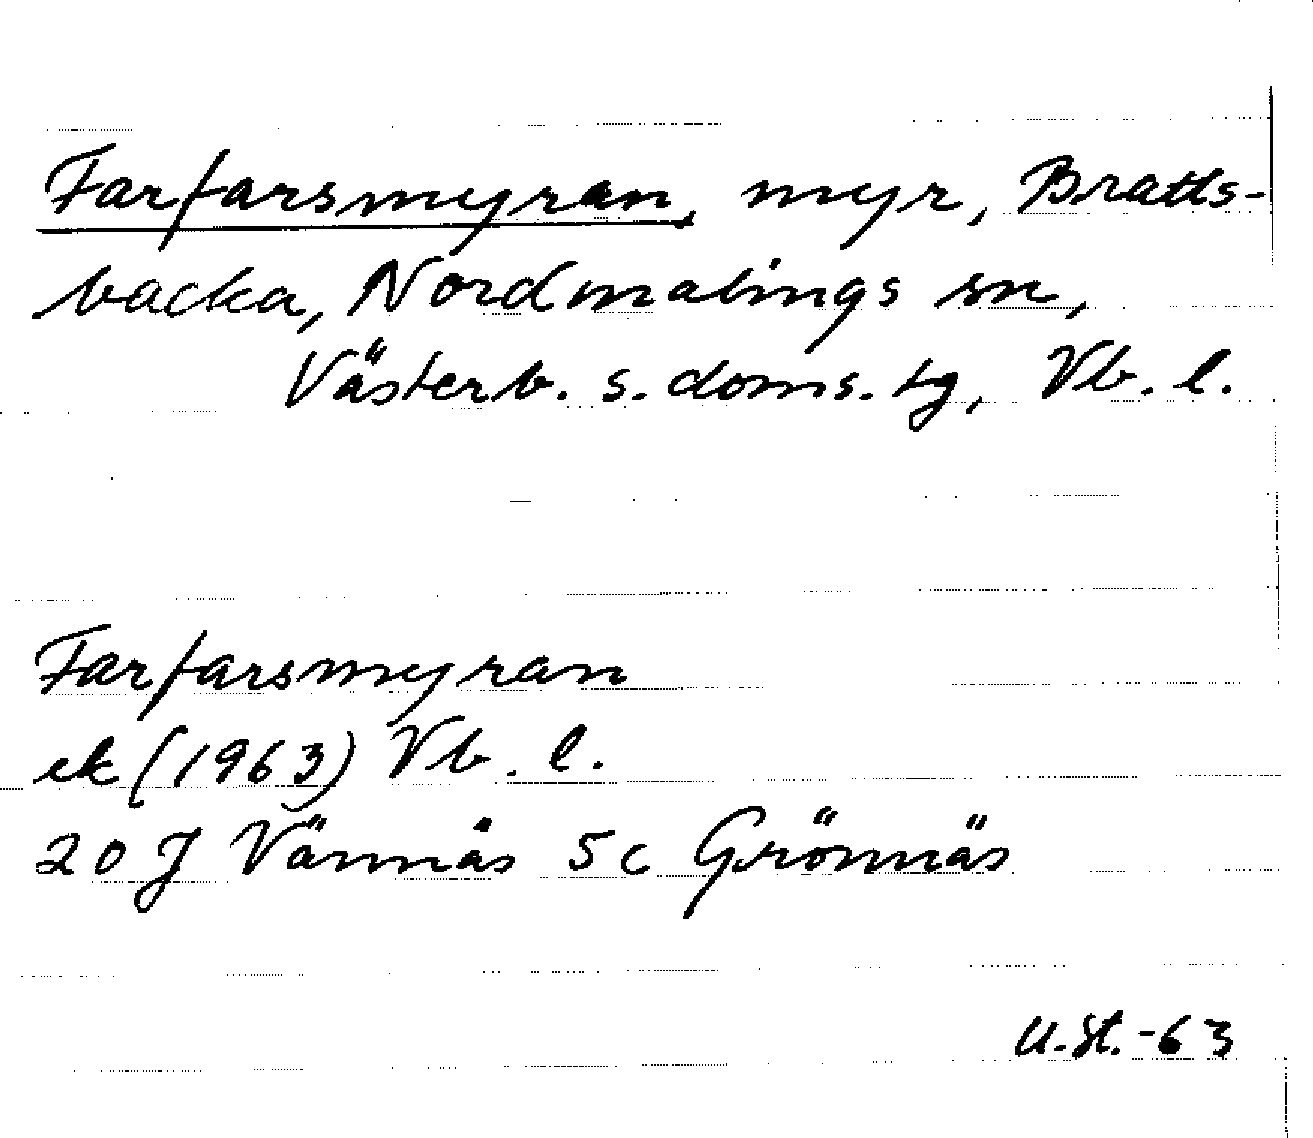 Farfarsmyran, myr, Bratts-
backa, Nordmalings sn,
Västerb. s. doms. tg, Vb. l.
Farfarsmyran
ek (1963) Vb. l.
20 J Vännäs 5c Grönnäs
U.St.-63